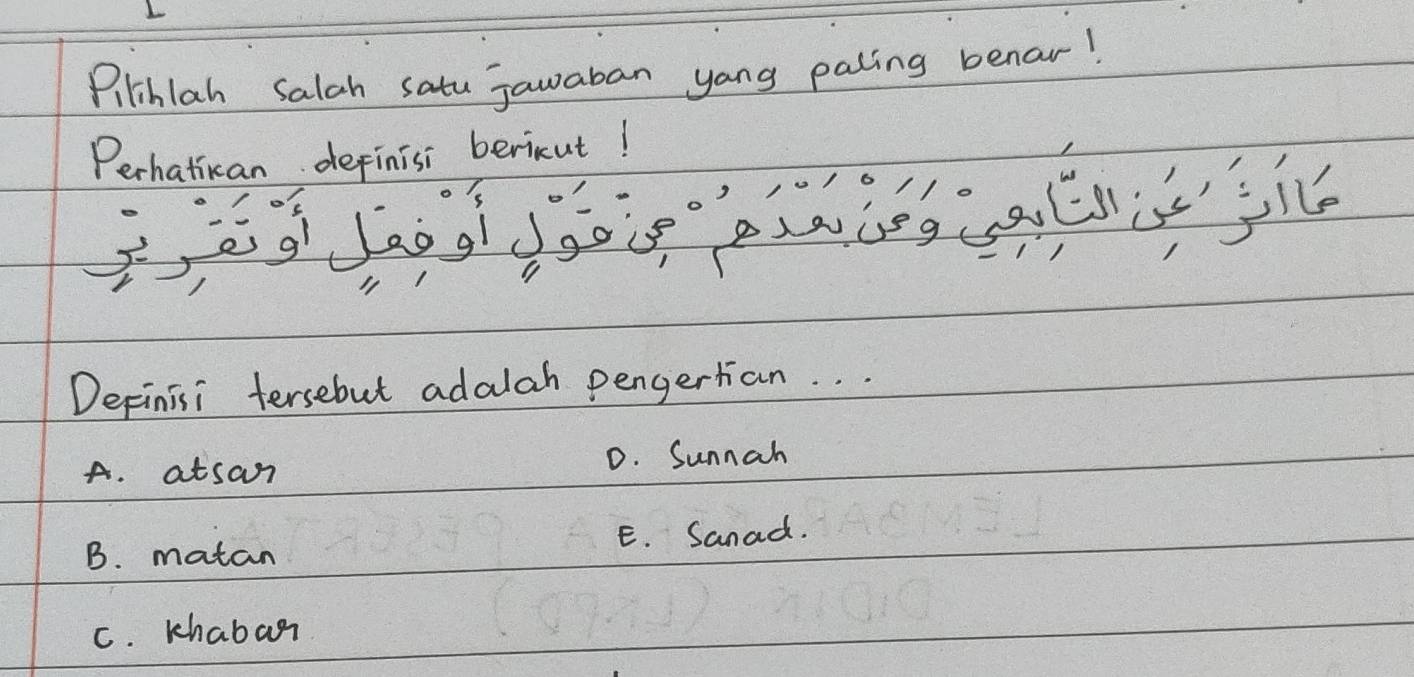 Pilihlah salah satu jawaban yang paling benar!
Perhatikan definisi berikut!
مَاأُثِرَ عَنِ التَّابِعِيْ وَمَنْ بَعْدَهُمْ مِنْ قَوْلٍ أَوْ فِعْلٍ أَوْ تَقْرِيْرٍ
Definisi tersebut adalah pengertian ...
A. atsar
D. Sunnah
B. matan
E. Sanad.
C. Khabar